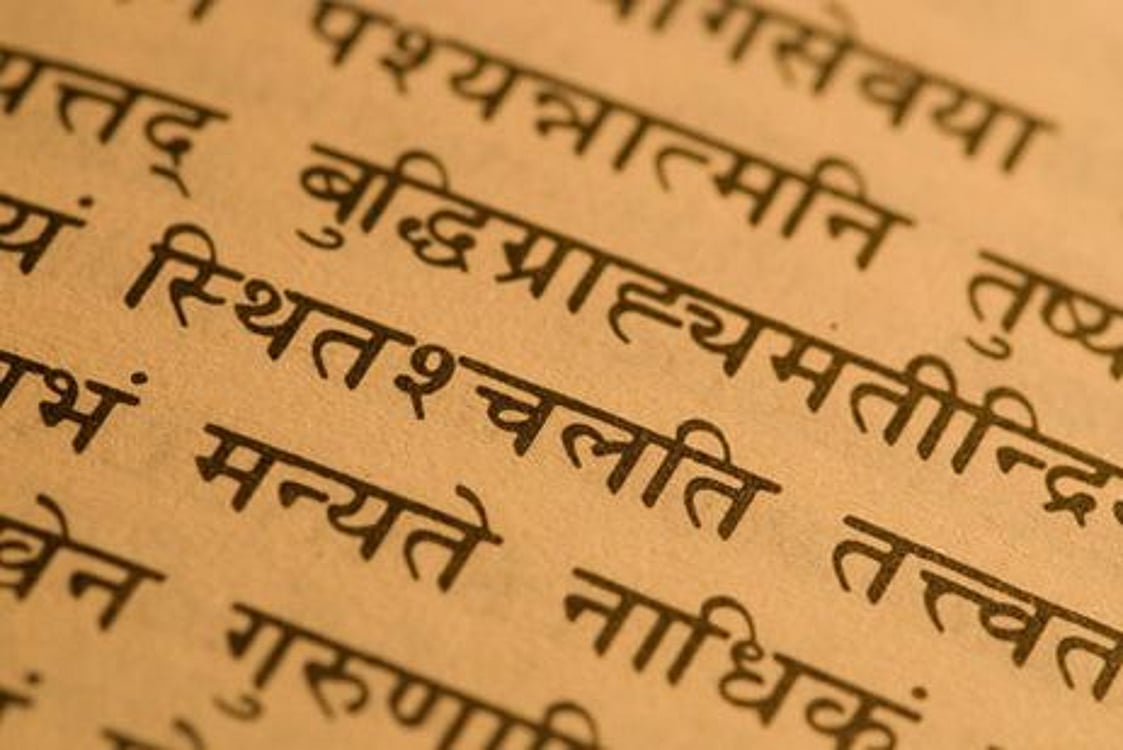 गसेवया
पश्यन्नात्मनि तुष्य
यत्तद् बुद्धिग्राह्यमतीन्द्रि
यं स्थितश्चलति तत्त्वत
ाभं मन्यते नाधिकं
खेन गुरुणापि